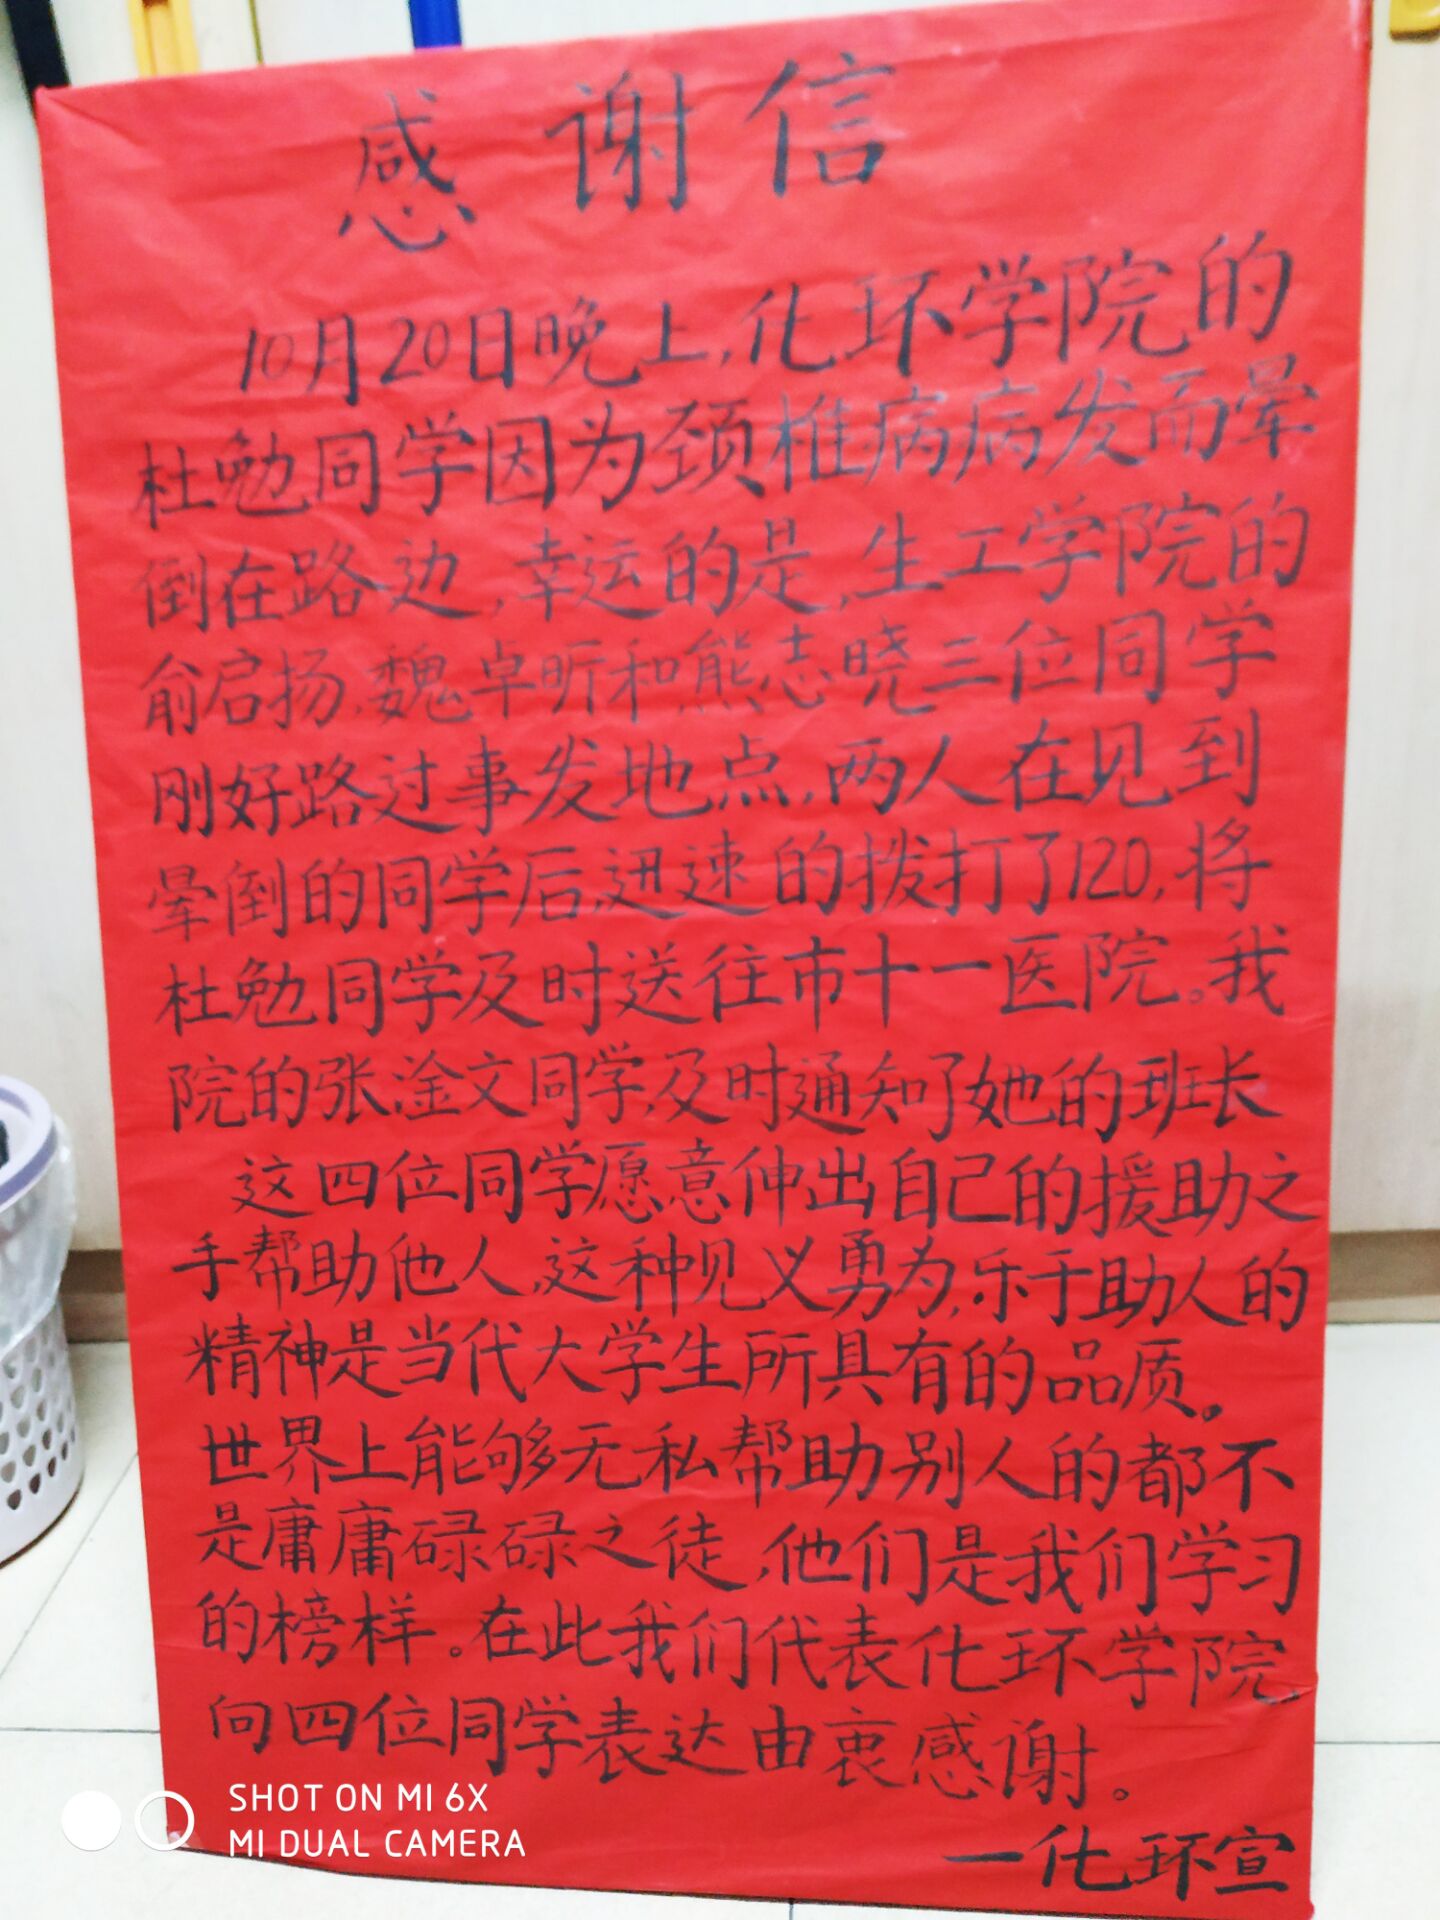 感谢信
10月20日晚上,化环学院的
杜勉同学因为颈椎病病发而晕
倒在路边,幸运的是,生工学院的
俞启扬、魏卓昕和熊志晓三位同学
刚好路过事发地点,两人在见到
晕倒的同学后,迅速的拨打了120,将
杜勉同学及时送往市十一医院。我
院的张淦文同学,及时通知了她的班长
这四位同学愿意伸出自己的援助之
手帮助他人,这种见义勇为,乐于助人的
精神是当代大学生所具有的品质。
世界上能够无私帮助别人的都不
是庸庸碌碌之徒,他们是我们学习
的榜样。在此我们代表化环学院
向四位同学表达由衷感谢。
一化环宣
SHOT ON MI 6X
MI DUAL CAMERA